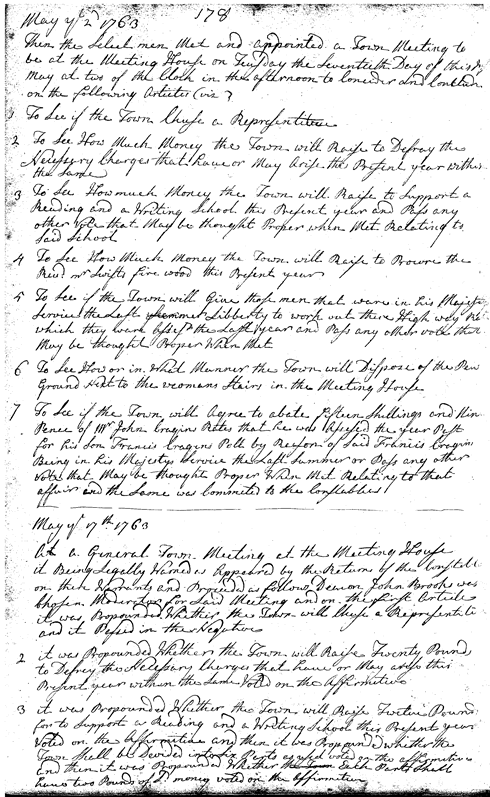 178
May ye 2 1763
Then the Select men Met and appointed a Town Meeting to
be at the Meeting House on Tuesday the Seventeenth Day of this
May at two of the Clock in the afternoon to Consider and Conclude
on the following Articles (viz)
1 To See if the Town Chuse a Representitive
2 To See How Much Money the Town will Raise to Defray the
Necessery Charges that have or May Arise the Present year within
the Same
3 To See How much Money the Town will Raise to Support a
Reading and a Writing School this Present year and Pass any
other Vote that May be thought Proper when Met Relating to
Said School
4 To See How Much Money the Town will Raise to Procure the
Revd mr Swifts fire wood this Present year
5 To See if the Town will Give those men that were in his Majestys
Service the Last Summer Libberty to work out there High way
which they were asses'd the Last year and Pass any other vote that
May be thought Proper When Met
6 To See How or in What Manner the Town will Dispose of the Pew
Ground Next to the womans Stairs in the Meeting House
7 To See if the Town will agree to abate fifteen Shillings and Nin
Pence of Mr John Cragins Rates that he was Assessed the year Past
for his Son Francis Cragins Pole by Reason of Said Francis Cragins
Being in his Majestys Service the Last Summer or Pass any other
Vote that May be thought Proper When Met Relating to that
affair and the Same was Committed to the Constables
May ye 17th 1763
At a General Town Meeting at the Meeting House
it Being Legally Warned as Appeared by the Return of the Constable
on their Warrants and Proceeded as follows Deacon John Brooks was
Chosen Moderator for Said Meeting and on the first Article
it was Propounded Whether the Town will Chuse a Representitive
and it Passed in the Negative
2 it was Propounded Whether the Town will Raise Twenty Pound
to Defray the Necessary Charges that have or May arise this
Present year within the Same Voted on the Affirmative
3 it was Propounded Whether the Town will Raise Twelve Pounds
for to Support a Reading and a Writing School this Present year
Voted on the Affirmative and then it was Propounded whether the
Town Shall be Devided into Parts as used voted on the affirmative
and then it was Propounded Whether Each Parts Shall
have two Pounds of money voted on the affirmative